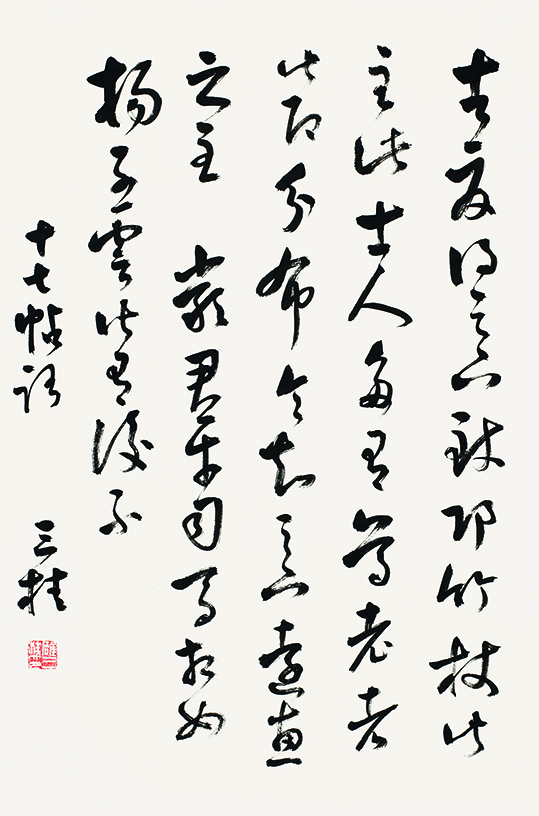 去夏得足下致邛竹杖皆
至此士人多有尊老者
皆即分布令知足下遠惠
之至 嚴君平司馬相如
楊子雲皆有後不
十七帖語 三桂